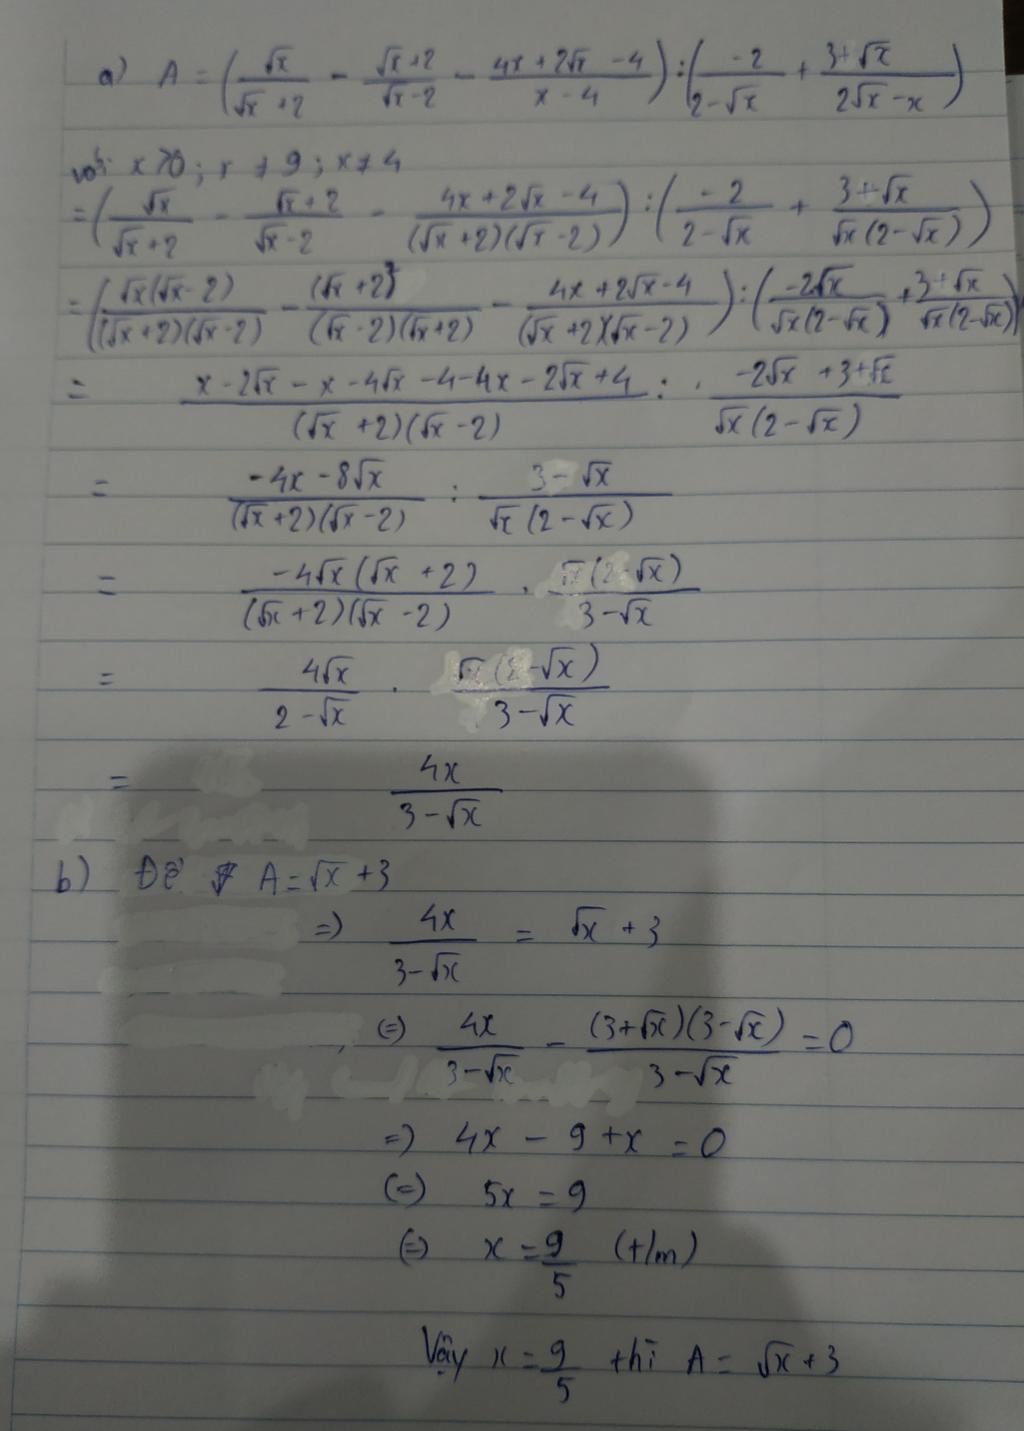 a) A = (√x/(√x+2) - (√x+2)/(√x-2) - (4x+2√x-4)/(x-4)) : (-2/(2-√x) + (3+√x)/(2√x-x))
với x>0; x ≠ 9; x ≠ 4
= (√x/(√x+2) - (√x+2)/(√x-2) - (4x+2√x-4)/((√x+2)(√x-2))) : (-2/(2-√x) + (3+√x)/(√x(2-√x)))
= (√x(√x-2)/((√x+2)(√x-2)) - (√x+2)²/((√x-2)(√x+2)) - (4x+2√x-4)/((√x+2)(√x-2))) : (-2√x/(√x(2-√x)) + (3+√x)/(√x(2-√x)))
= (x-2√x-x-4√x-4-4x-2√x+4)/((√x+2)(√x-2)) : (-2√x+3+√x)/(√x(2-√x))
= (-4x-8√x)/((√x+2)(√x-2)) : (3-√x)/(√x(2-√x))
= -4√x(√x+2)/((√x+2)(√x-2)) . √x(2-√x)/(3-√x)
= 4√x/(2-√x) . √x(2-√x)/(3-√x)
= 4x/(3-√x)
b) Để A = √x+3
=) 4x/(3-√x) = √x+3
(=) 4x/(3-√x) - (3+√x)(3-√x)/(3-√x) = 0
=) 4x - 9 + x = 0
(=) 5x = 9
(=) x = 9/5 (t/m)
Vậy x = 9/5 thì A = √x+3